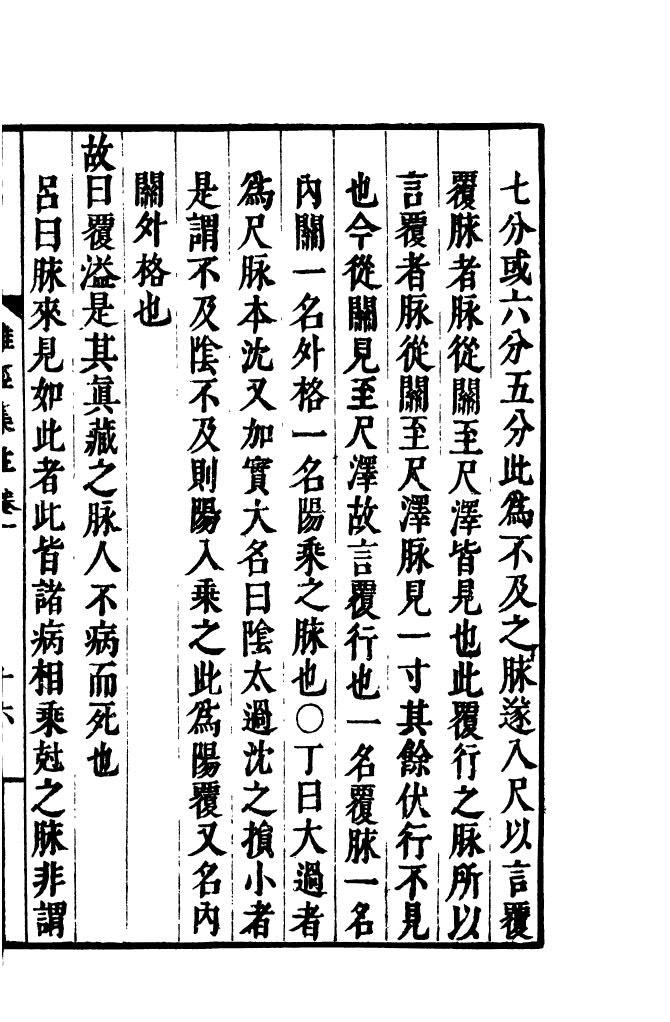 七分或六分五分此爲不及之脉遂入尺以言覆
覆脉者脉從關至尺澤皆見也此覆行之脉所以
言覆者脉從關至尺澤脉見一寸其餘伏行不見
也今從關見至尺澤故言覆行也一名覆脉一名
內關一名外格一名陽乘之脉也〇丁曰大過者
爲尺脉本沈又加實大名曰陰太過沈之損小者
是謂不及陰不及則陽入乘之此爲陽覆又名內
關外格也
故曰覆溢是其真藏之脉人不病而死也
呂曰脉來見如此者此皆諸病相乘尅之脉非謂
難經集註卷一
十六